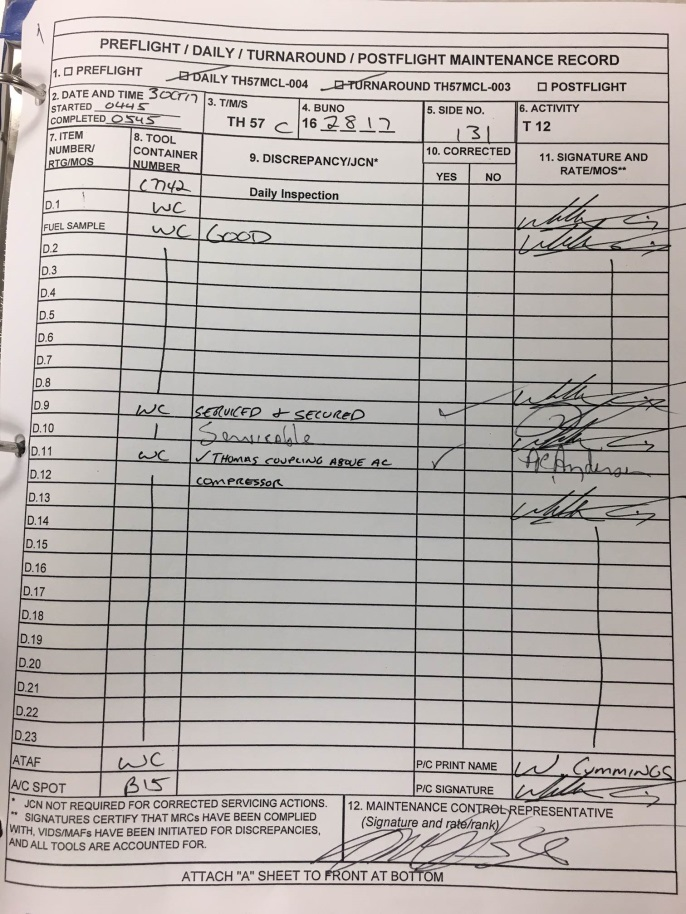 PREFLIGHT / DAILY / TURNAROUND / POSTFLIGHT MAINTENANCE RECORD
1. ☐ PREFLIGHT ☐ DAILY TH57MCL-004 ☐ TURNAROUND TH57MCL-003 ☐ POSTFLIGHT
2. DATE AND TIME 30OCT17
STARTED 0445
COMPLETED 0545
3. T/M/S
TH 57 C
4. BUNO
16 2817
5. SIDE NO.
131
6. ACTIVITY
T 12
7. ITEM NUMBER/ RTG/MOS
8. TOOL CONTAINER NUMBER
9. DISCREPANCY/JCN*
10. CORRECTED
YES NO
11. SIGNATURE AND RATE/MOS**
Daily Inspection
D.1 WC
FUEL SAMPLE WC GOOD
D.2
D.3
D.4
D.5
D.6
D.7
D.8
D.9 WC SERVICED & SECURED ✓
D.10 Serviceable
D.11 WC ✓ THOMAS COUPLING ABOVE AC ✓ AC Anderson
D.12 COMPRESSOR
D.13
D.14
D.15
D.16
D.17
D.18
D.19
D.20
D.21
D.22
D.23
ATAF WC P/C PRINT NAME W. CUMMINGS
A/C SPOT B15 P/C SIGNATURE
* JCN NOT REQUIRED FOR CORRECTED SERVICING ACTIONS.
** SIGNATURES CERTIFY THAT MRCs HAVE BEEN COMPLIED
WITH, VIDS/MAFs HAVE BEEN INITIATED FOR DISCREPANCIES,
AND ALL TOOLS ARE ACCOUNTED FOR.
12. MAINTENANCE CONTROL REPRESENTATIVE
(Signature and rate/rank)
ATTACH "A" SHEET TO FRONT AT BOTTOM